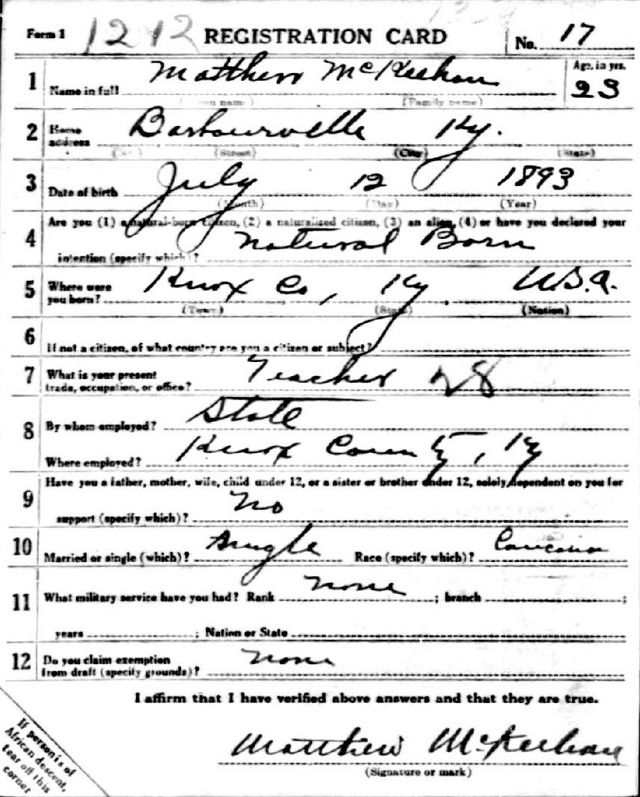 Form 1 1212 REGISTRATION CARD No. 17
1 Name in full Matthew McKeehan Age, in yrs. 23
(Family name)
2 Home address Barbourville Ky.
(No.) (Street) (City) (State)
3 Date of birth July 12 1893
(Month) (Day) (Year)
4 Are you (1) a natural-born citizen, (2) a naturalized citizen, (3) an alien, (4) or have you declared your
intention (specify which)? Natural Born
5 Where were you born? Knox Co, Ky U.S.A.
(Town) (State) (Nation)
6 If not a citizen, of what country are you a citizen or subject?
7 What is your present trade, occupation, or office? Teacher 28
8 By whom employed? State
Where employed? Knox County, Ky
9 Have you a father, mother, wife, child under 12, or a sister or brother under 12, solely dependent on you for
support (specify which)? No
10 Married or single (which)? Single Race (specify which)? Caucasian
11 What military service have you had? Rank None ; branch ;
years ; Nation or State
12 Do you claim exemption from draft (specify grounds)? None
I affirm that I have verified above answers and that they are true.
Matthew McKeehan
(Signature or mark)
If person is of
African descent,
tear off this
corner.